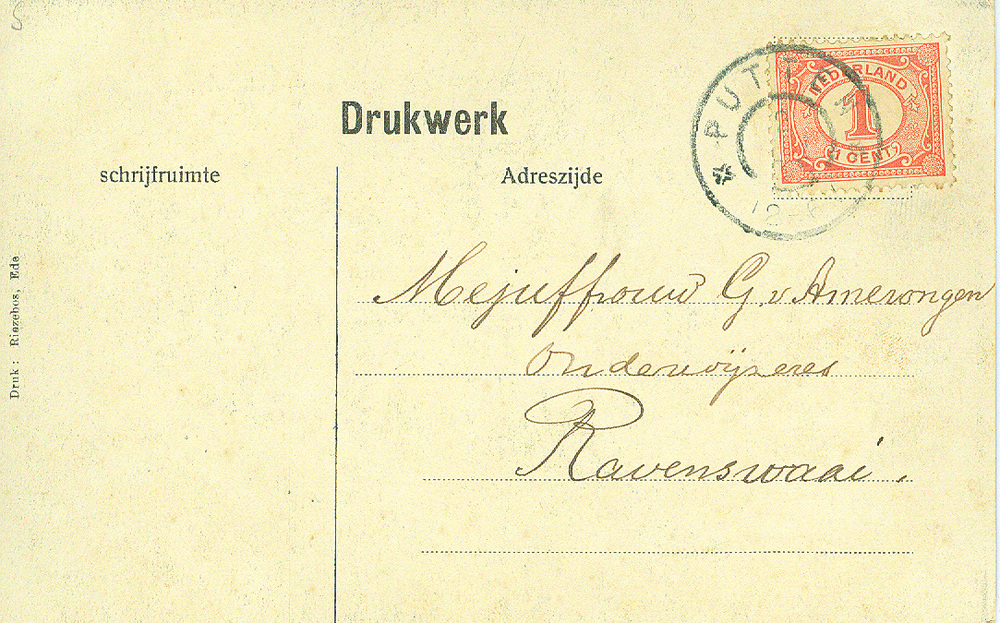 Drukwerk
schrijfruimte
Adreszijde
PUTTEN
NEDERLAND
1
1 CENT
Mejuffrouw G. v. Amerongen
Onderwijzeres
Ravenswaai.
Druk: Riezebos, Ede